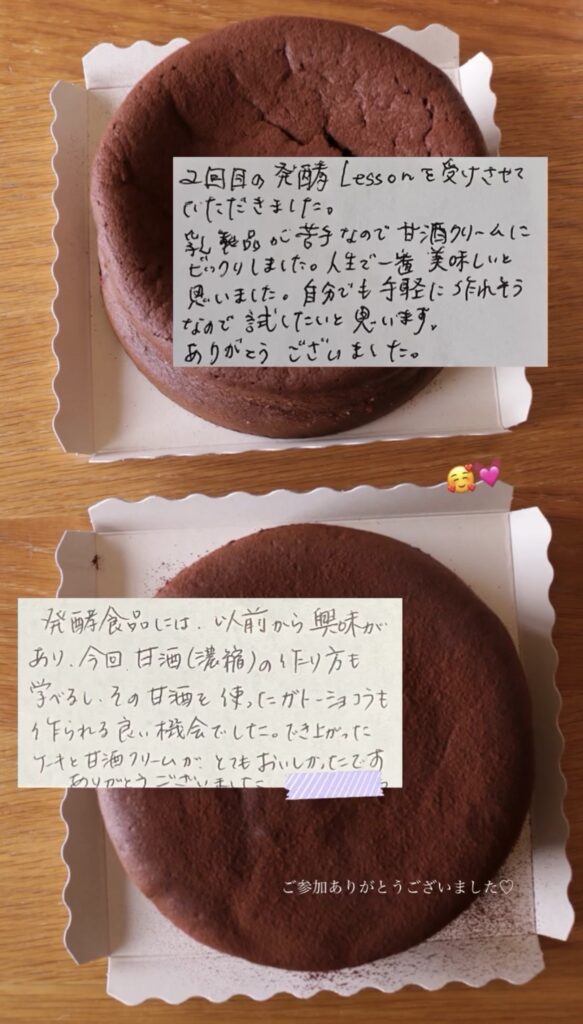 2回目の発酵Lessonを受けさせて
いただきました。
乳製品が苦手なので甘酒クリームに
ビックリしました。人生で一番美味しいと
思いました。自分でも手軽に作れそう
なので試したいと思います。
ありがとうございました。
発酵食品には、以前から興味が
あり、今回甘酒(濃縮)の作り方も
学べるし、その甘酒を使ったガトーショコラも
作られる良い機会でした。でき上がった
ケーキと甘酒クリームが、とてもおいしかったです
ありがとうございました
ご参加ありがとうございました♡